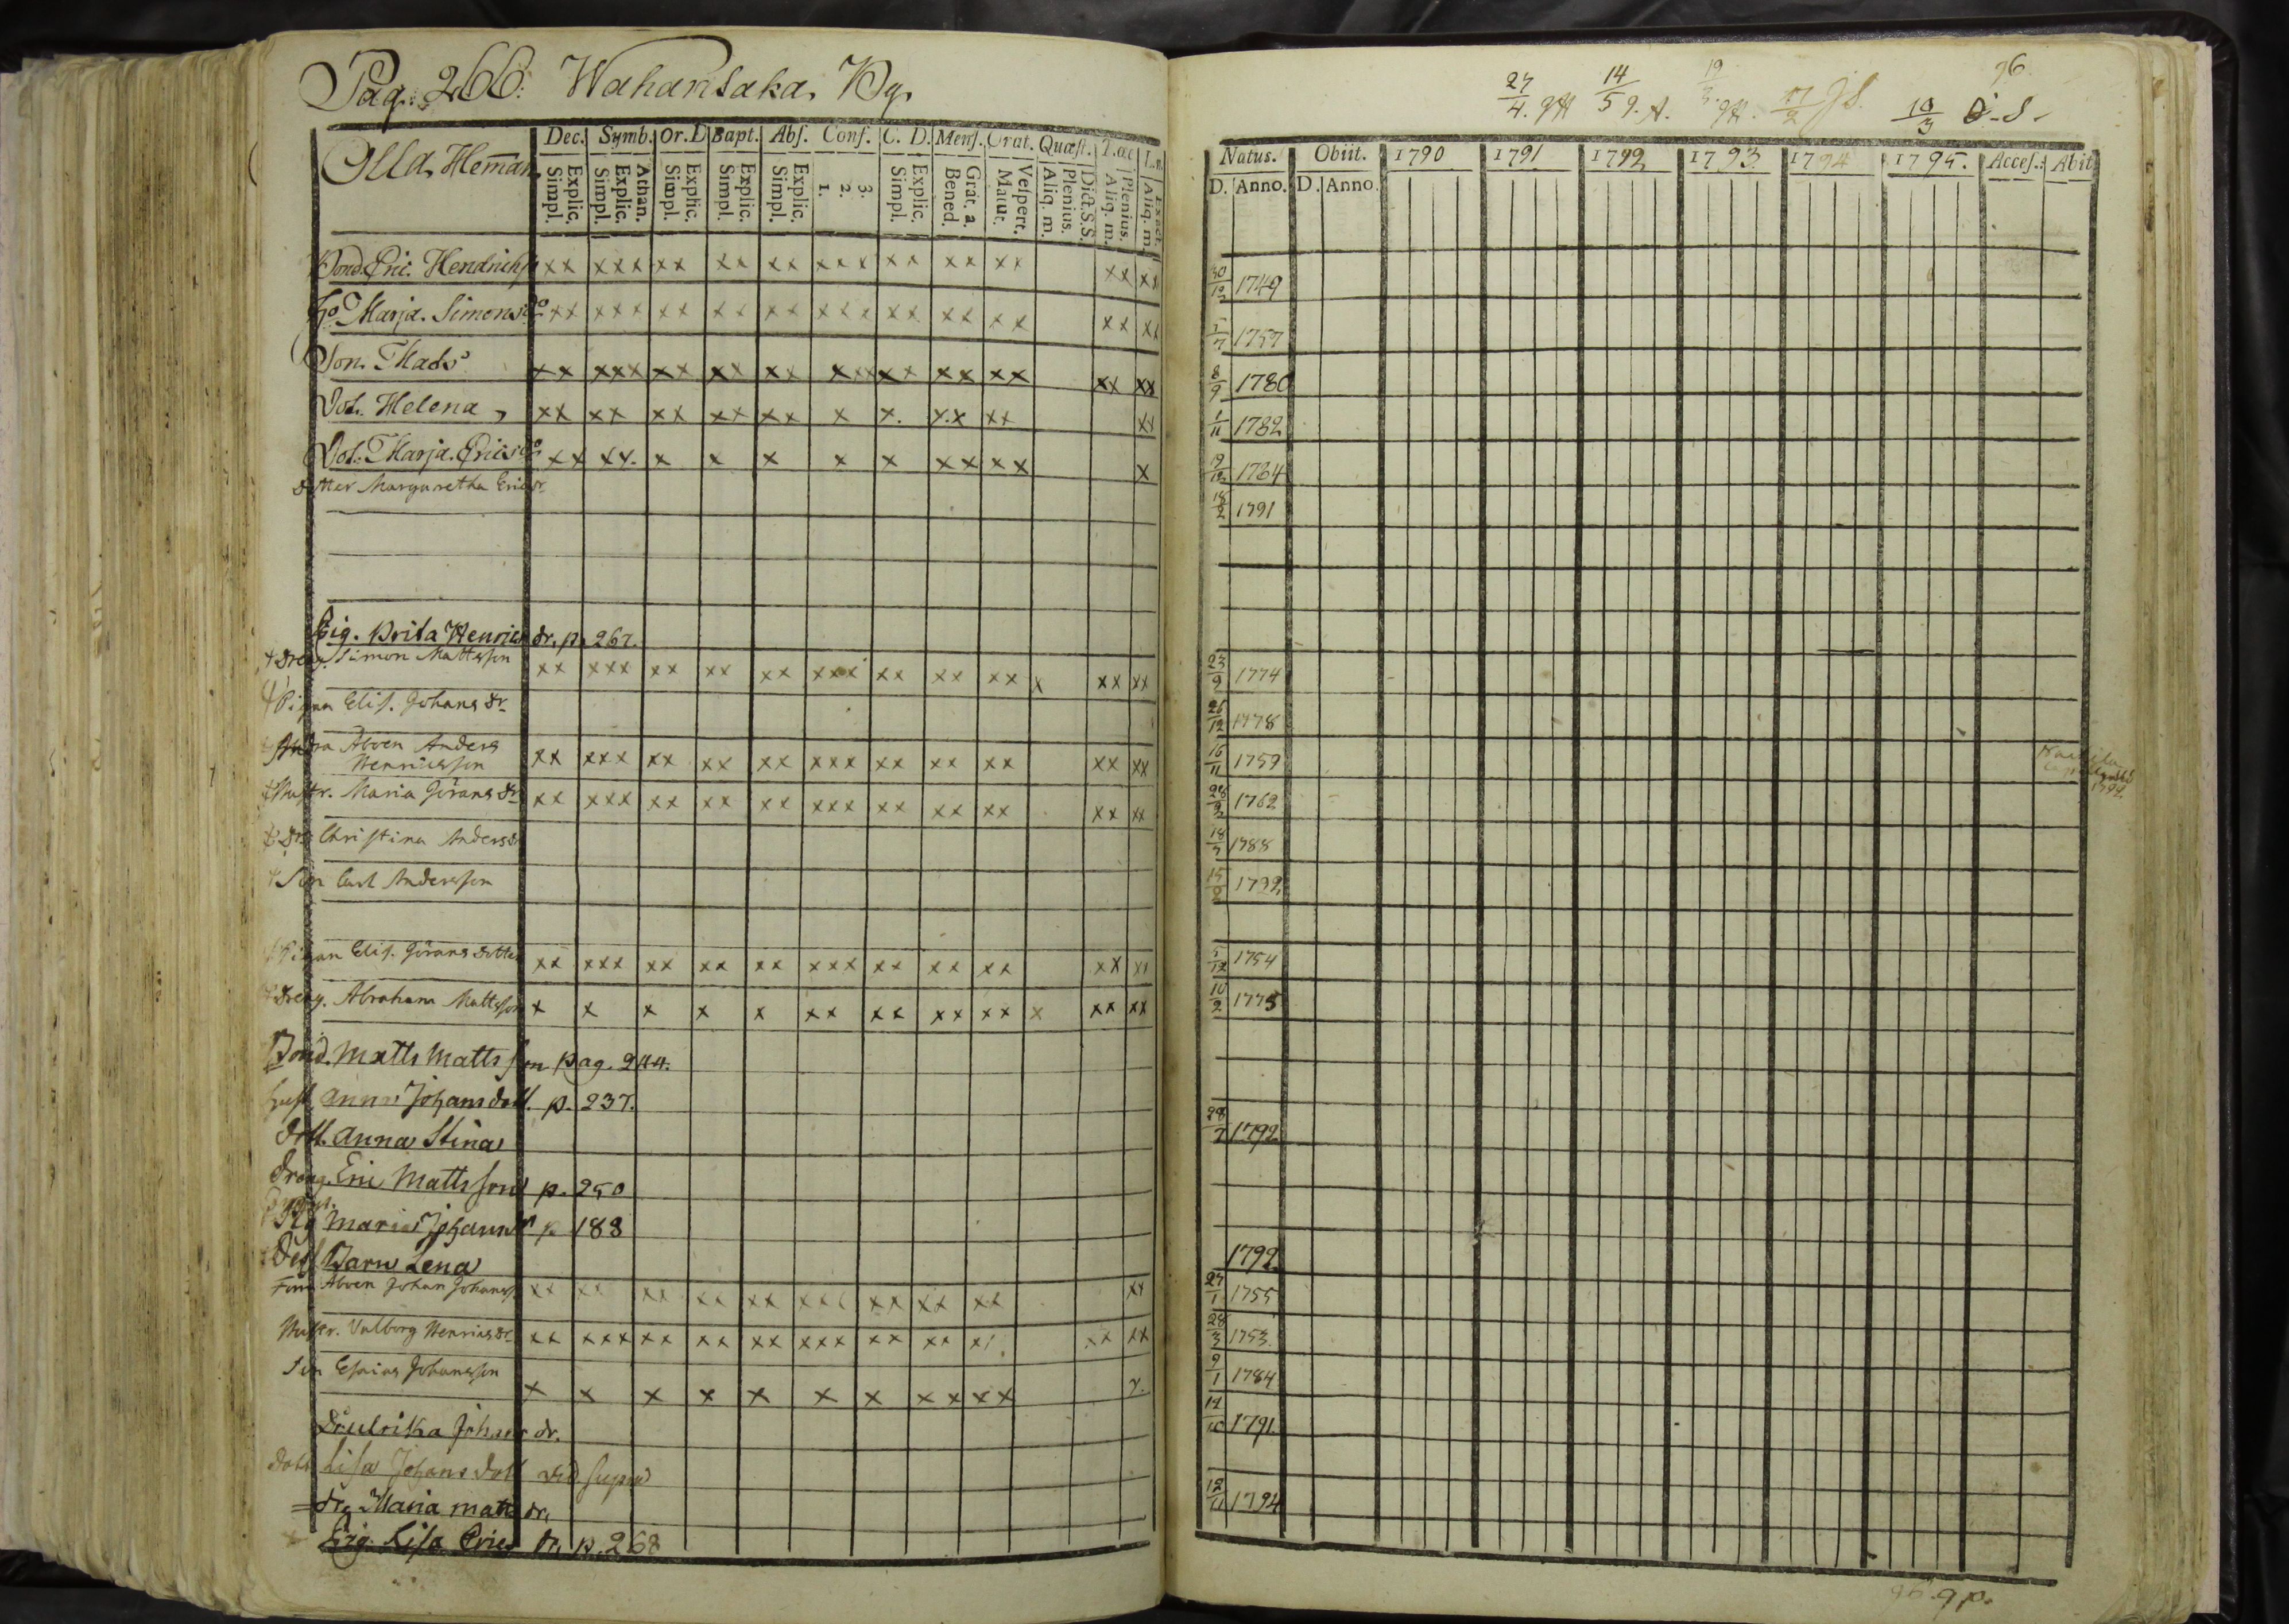 Pag. 266. Wahansaka. By.
Olla Hemman
Dec. Symb. Or. D Bapt. Abs. Conf. C. D. Mens. Orat. Quæst. T. œc
Simpl. Explic. Simpl. Explic. Athan. Simpl. Explic. Simpl. Explic. Simpl. Explic. 1. 2. 3. Simpl. Explic. Bened. Grat. a. Matut. Vespert. Aliq. m. Plenius. Dict. S.S. Aliq. m. Plenius. Aliq. m. Exact.
Bond. Eric. Hendrichs xx xxx xx xx xx xxx xx xx xx xx xx
Ho Marja. Simonsdo xx xxx xx xx xx xxx xx xx xx xx xx
Son. Mads xx xxx xx xx xx xxx xx xx xx xx xx
Dot. Helena, xx xx xx xx xx x x. x.x xx xx
Dot. Marja. Ericsdo xx xx. x x x x x xx xx x
dotter Margaretha Ericsdr
Pig. Brita Henrics dr, p. 267.
Dreng. Simon Mattsson xx xxx xx xx xx xxx xx xx xx x xx xx
Pigan Elis. Johans dr
Åboen Anders
Henricsson xx xxx xx xx xx xxx xx xx xx xx xx
Hustr. Maria Görans dr xx xxx xx xx xx xxx xx xx xx xx xx
Dr Christina Andersdr
Son Carl Andersson
Pigan Elis. Görans dotter xx xxx xx xx xx xxx xx xx xx xx xx
Dreng. Abraham Mattsson x x x x x xx xx xx xx x xx xx
Bond. Matts Mattsson pag. 244.
hust Anna Johansdott. p. 237.
dott. Anna Stina
Dreng. Eric Mattsson p. 250
Pig Maria Johansdr p. 188
Barn Lena
Åboen Johan Johanss xx xx xx xx xx xxx xx xx xx xx
Hustr. Valborg Henricsdr xx xxx xx xx xx xxx xx xx x xx xx
Son Esaias Johansson x x x x x x x xx xx x.
Dr Ulrika Johans dr.
Dott Lisa Johans dott vid supra
dr, Maria matts dr,
Pig. Lisa Erics dr, p. 268
96.
27/4. 14/5 9. A. 19/3. 17/2 J S. 10/3 D. S.
Natus. Obiit. 1790 1791 1792 1793 1794 1795. Acces. Abit
D. Anno. D. Anno.
30/12 1749
5/7 1757
8/9 1780
1/11 1782
19/12 1784
18/2 1791
23/9 1774
26/12 1778
16/11 1759
28/2 1762
18/7 1788
15/8 1792
5/12 1754
10/2 1775
28/7 1792
1792
27/1 1755
28/3 1753
9/1 1784
14/10 1791.
12/11 1794
1792.
96. 9 p.